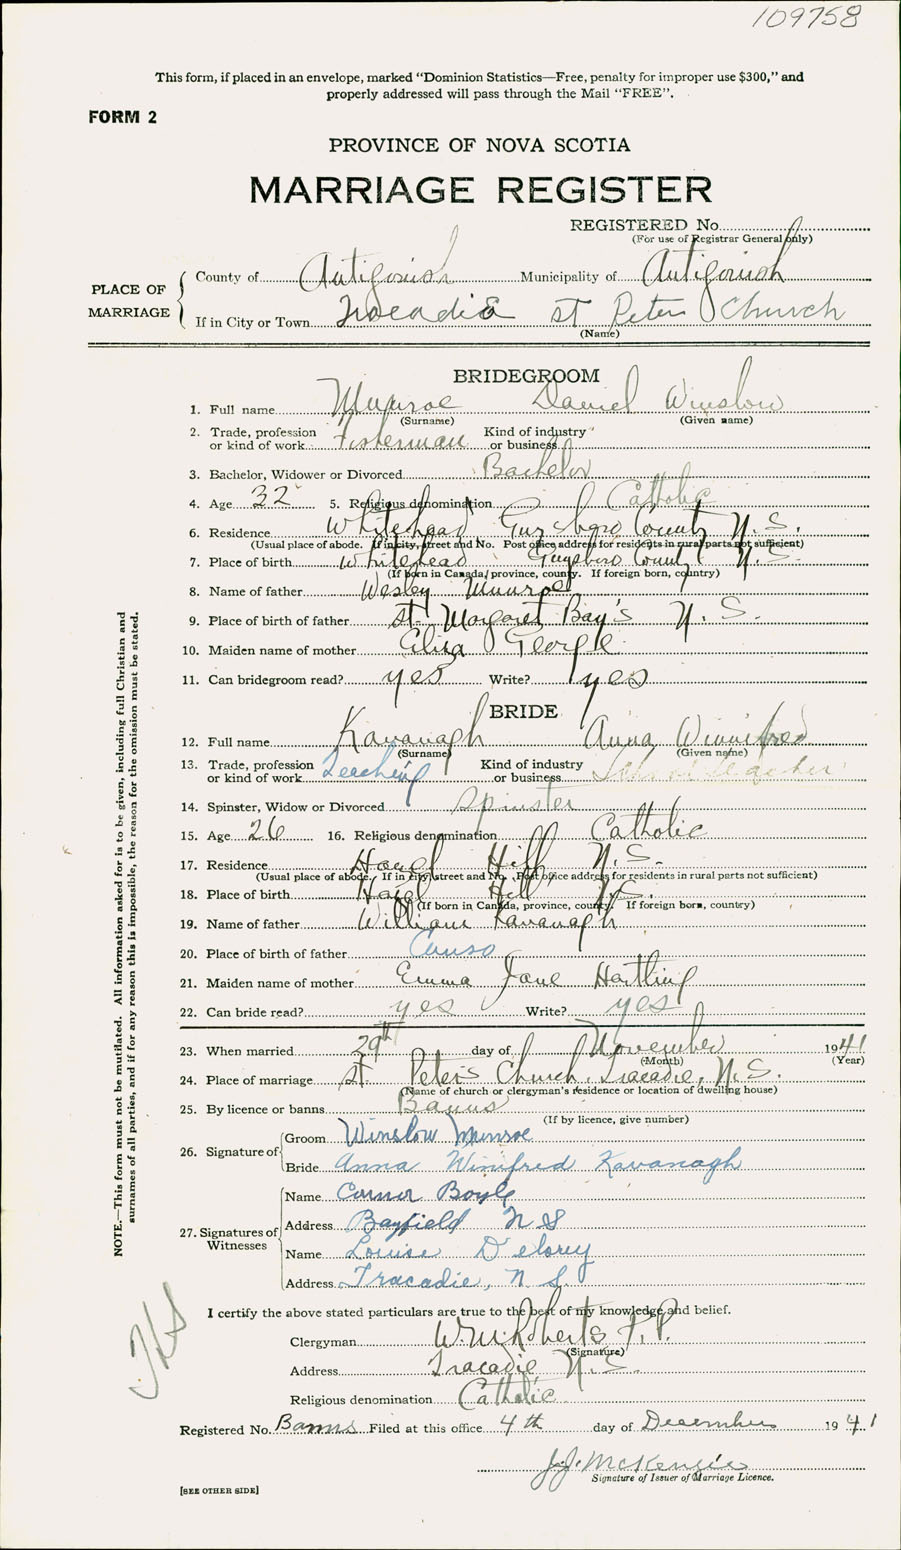 109758
This form, if placed in an envelope, marked "Dominion Statistics—Free, penalty for improper use $300," and
properly addressed will pass through the Mail "FREE".
FORM 2
PROVINCE OF NOVA SCOTIA
MARRIAGE REGISTER
REGISTERED No.
(For use of Registrar General only)
PLACE OF MARRIAGE
County of Antigonish Municipality of Antigonish
If in City or Town Tracadie St Peter Church
(Name)
BRIDEGROOM
1. Full name Munroe Daniel Winslow
(Surname) (Given name)
2. Trade, profession or kind of work Fisherman Kind of industry or business
3. Bachelor, Widower or Divorced Bachelor
4. Age 32 5. Religious denomination Catholic
6. Residence Whitehead Guysboro County N.S.
(Usual place of abode. If in city, street and No. Post office address for residents in rural parts not sufficient)
7. Place of birth Whitehead Guysboro County N.S.
(If born in Canada, province, county. If foreign born, country)
8. Name of father Wesley Munroe
9. Place of birth of father St. Margaret Bay's N.S.
10. Maiden name of mother Eliza George
11. Can bridegroom read? yes Write? yes
BRIDE
12. Full name Kavanagh Anna Winnifred
(Surname) (Given name)
13. Trade, profession or kind of work Teaching Kind of industry or business School teacher
14. Spinster, Widow or Divorced Spinster
15. Age 26 16. Religious denomination Catholic
17. Residence Hazel Hill N.S.
(Usual place of abode. If in city, street and No. Post office address for residents in rural parts not sufficient)
18. Place of birth Hazel Hill N.S.
(If born in Canada, province, county. If foreign born, country)
19. Name of father William Kavanagh
20. Place of birth of father Canso
21. Maiden name of mother Emma Jane Hartling
22. Can bride read? yes Write? yes
23. When married 29th day of November 1941
(Month) (Year)
24. Place of marriage St. Peter's Church, Tracadie, N.S.
(Name of church or clergyman's residence or location of dwelling house)
25. By licence or banns Banns
(If by licence, give number)
26. Signature of
Groom Winslow Munroe
Bride Anna Winifred Kavanagh
27. Signatures of Witnesses
Name Conner Boyle
Address Bayfield N S
Name Louise Delorey
Address Tracadie, N S
I certify the above stated particulars are true to the best of my knowledge and belief.
Clergyman W. M. Roberts P.P.
(Signature)
Address Tracadie N.S.
Religious denomination Catholic
Registered No. Banns Filed at this office 4th day of December 1941
J.J. McKenzie
Signature of Issuer of Marriage Licence.
[SEE OTHER SIDE]
NOTE.—This form must not be mutilated. All information asked for is to be given, including full Christian and
surnames of all parties, and if for any reason this is impossible, the reason for the omission must be stated.